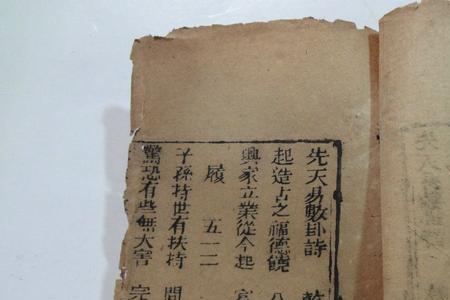 先天易數卦詩
起造占之福德饒
興家立業從今起
履 五一二
子孫持世有扶持
驚恐有些無大害